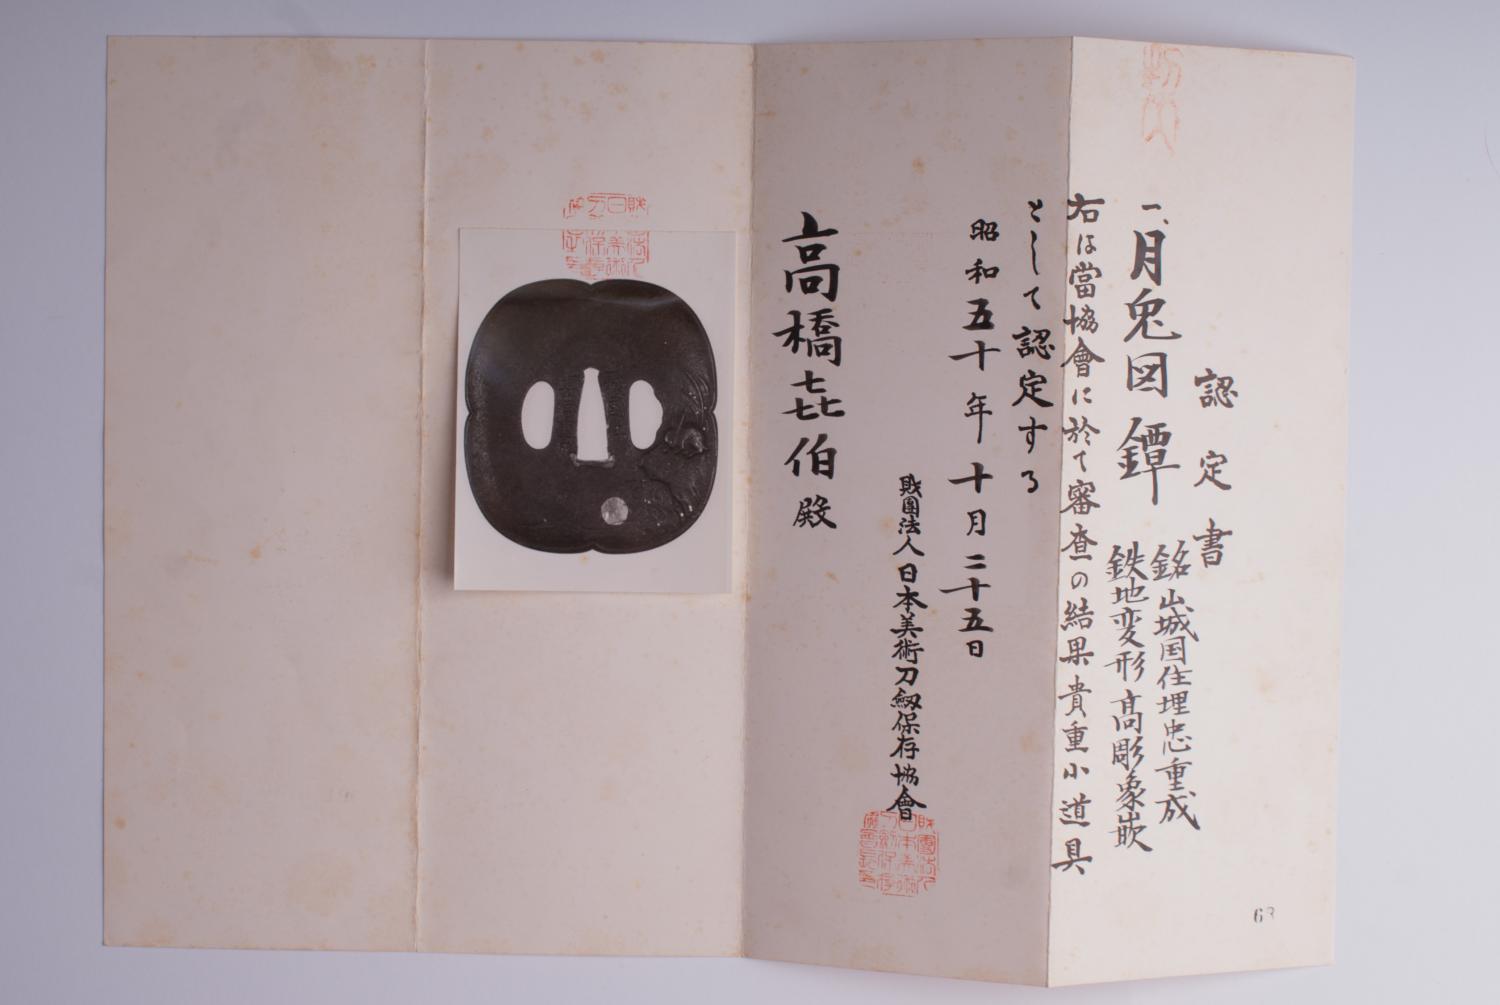 認定書
一、月兎図鐔
銘山城国住埋忠重成
鉄地変形高彫象嵌
右は當協會に於て審査の結果貴重小道具
として認定する
昭和五十年十月二十五日
財團法人日本美術刀劔保存協會
高橋㐂伯殿